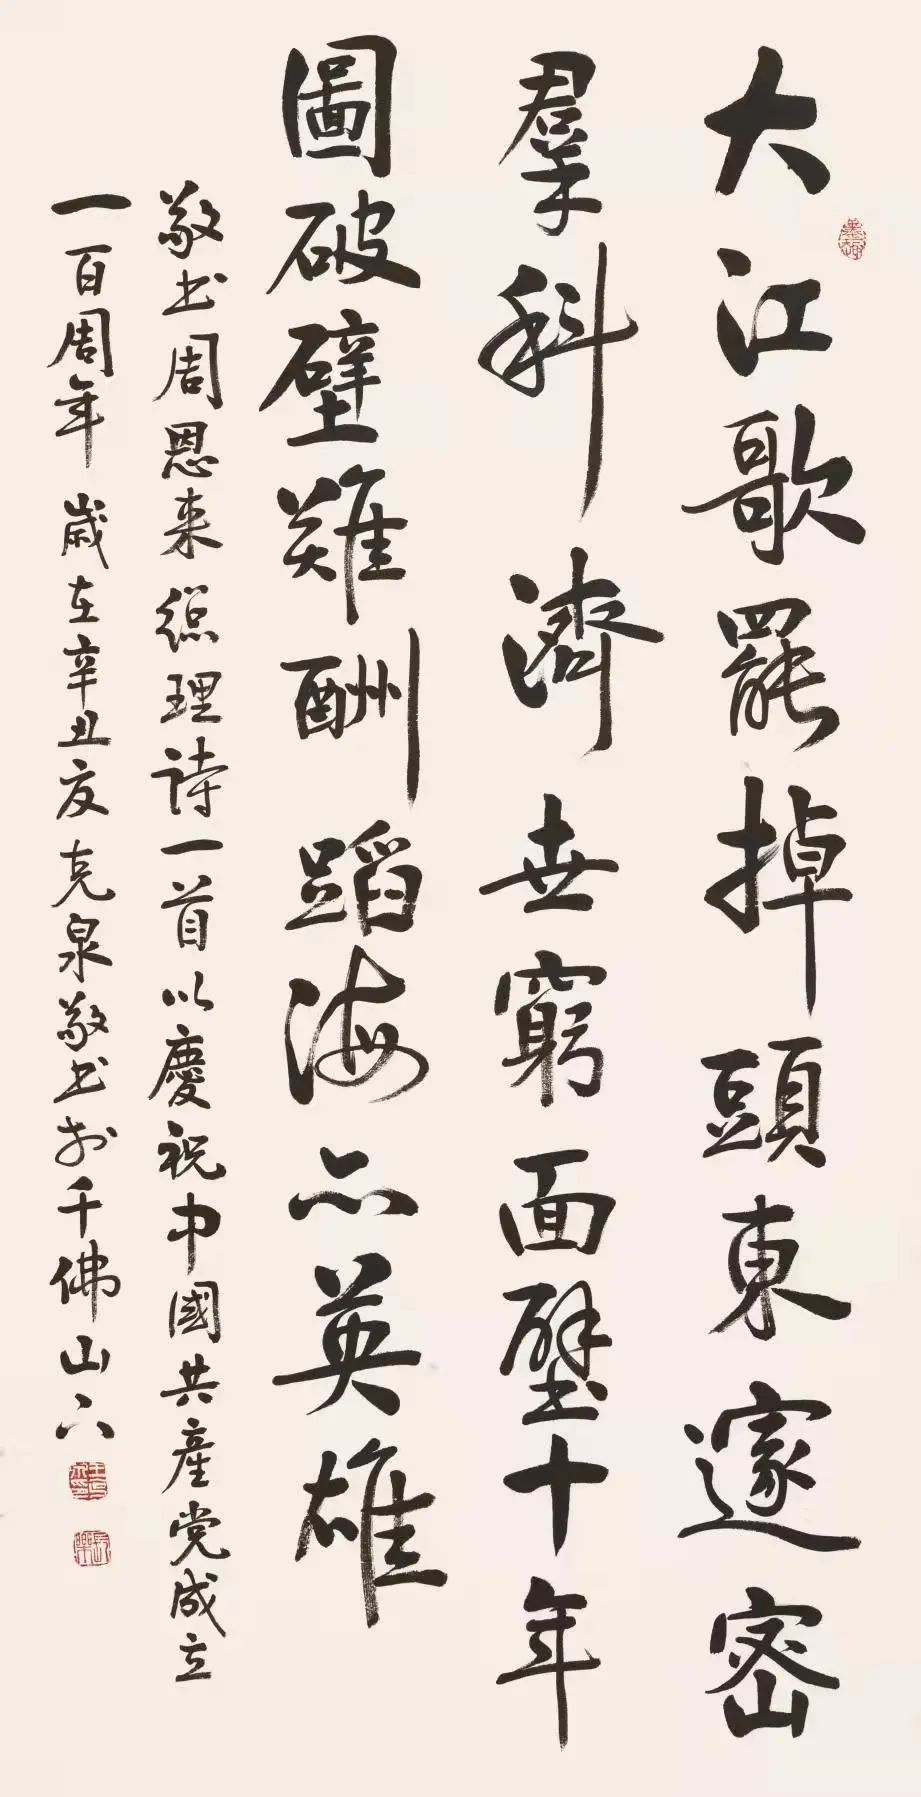 大江歌罷掉頭東邃密
羣科濟世窮面壁十年
圖破壁難酬蹈海亦英雄
敬书周恩来總理詩一首以慶祝中國共產党成立
一百周年歲在辛丑夏克泉敬书於千佛山下